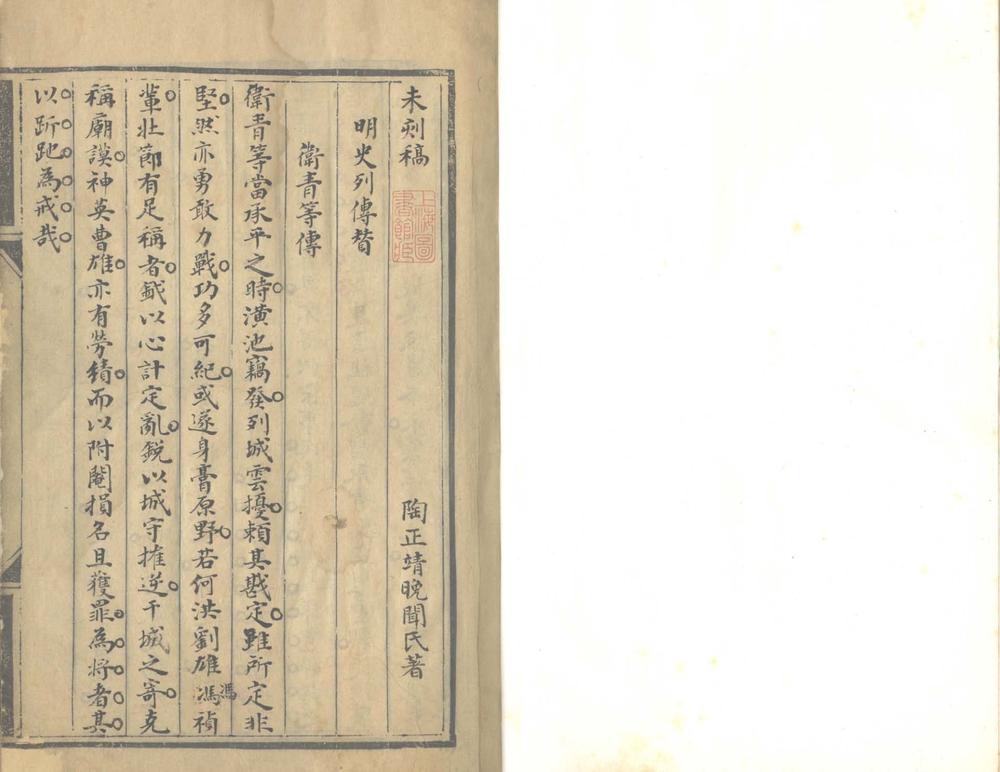 未刻稿
上海圖書館藏
陶正靖晚聞氏著
明史列傳贊
衛青等傳
衛青等當承平之時潢池竊發列城雲擾頼其戡定雖所定非
堅然亦勇敢力戰功多可紀或遂身膏原野若何洪劉雄馮禎
馮
軰壮節有足稱者鉞以心計定亂鋭以城守摧逆干城之寄克
稱廟謨神英曹雄亦有勞績而以附閹損名且獲罪為将者其
以跅為戒哉